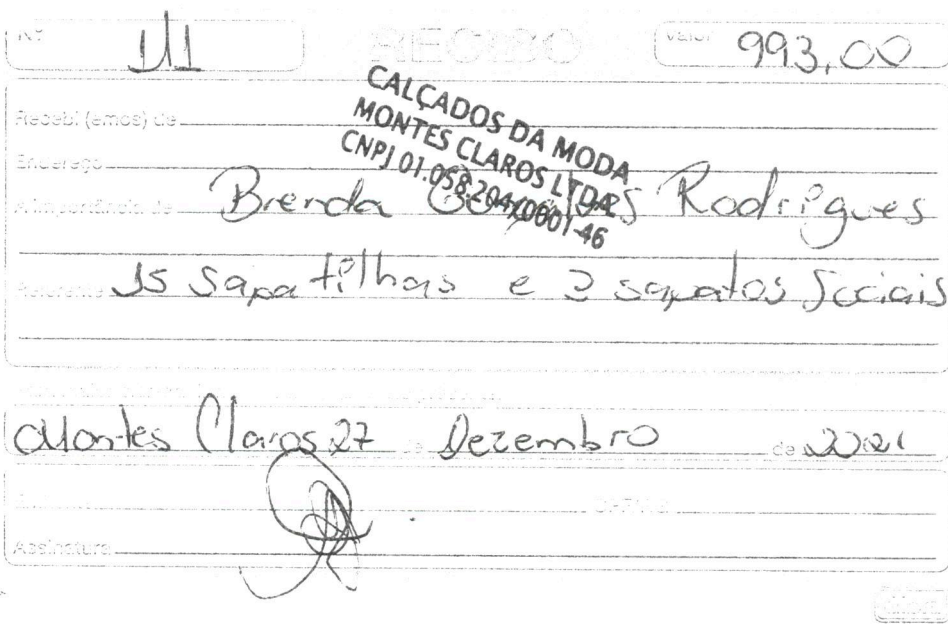 Nº 111
RECIBO
Valor 993,00
CALÇADOS DA MODA
MONTES CLAROS LTDA
CNPJ 01.058.204/0001-46
Recebi (emos) de
Endereço
A importância de Brenda Rodrigues
Referente 15 Sapatilhas e 2 sapatos Sociais
Montes Claros 27 de Dezembro de 2021
Assinatura